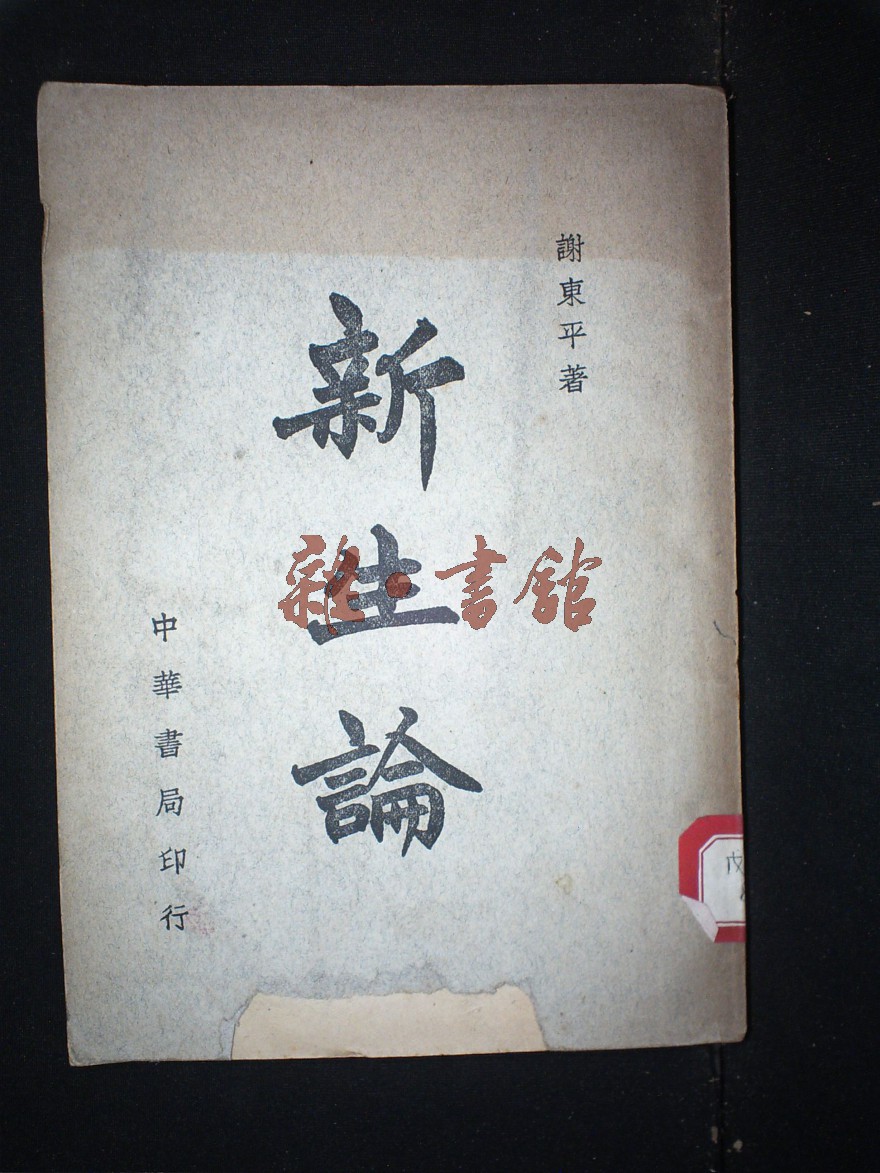 謝東平著
新生論
中華書局印行
雜·書館